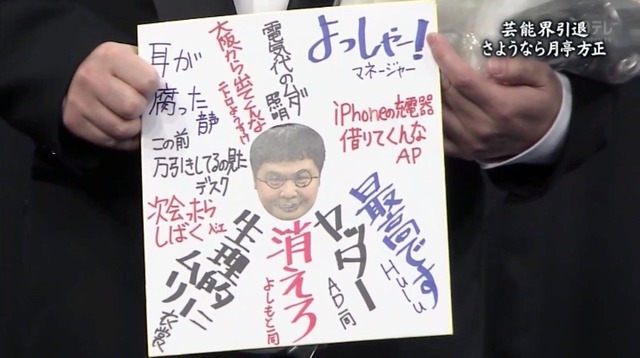 芸能界引退
さようなら月亭方正
日テレ
よっしゃー!
マネージャー
電気代のムダ
照明
大阪から出てくんな
耳が
腐った
音声
この前
万引きしてるの見た
デスク
次会ったら
しばく
iPhoneの充電器
借りてくんな
AP
最高です
Hulu
ヤッター
AD一同
消えろ
よしもと一同
生理的
にムリー
衣裳